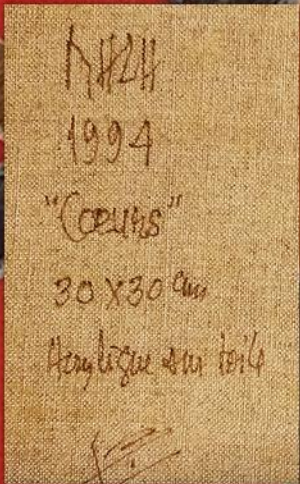 1994
"Coeurs"
30 X 30 cm
Acrylique sur toile